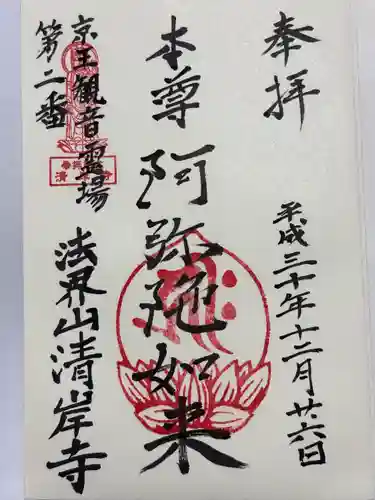 奉拝
平成三十年十二月廿六日
本尊
阿弥陀如来
京王観音霊場
第二番
法界山清岸寺